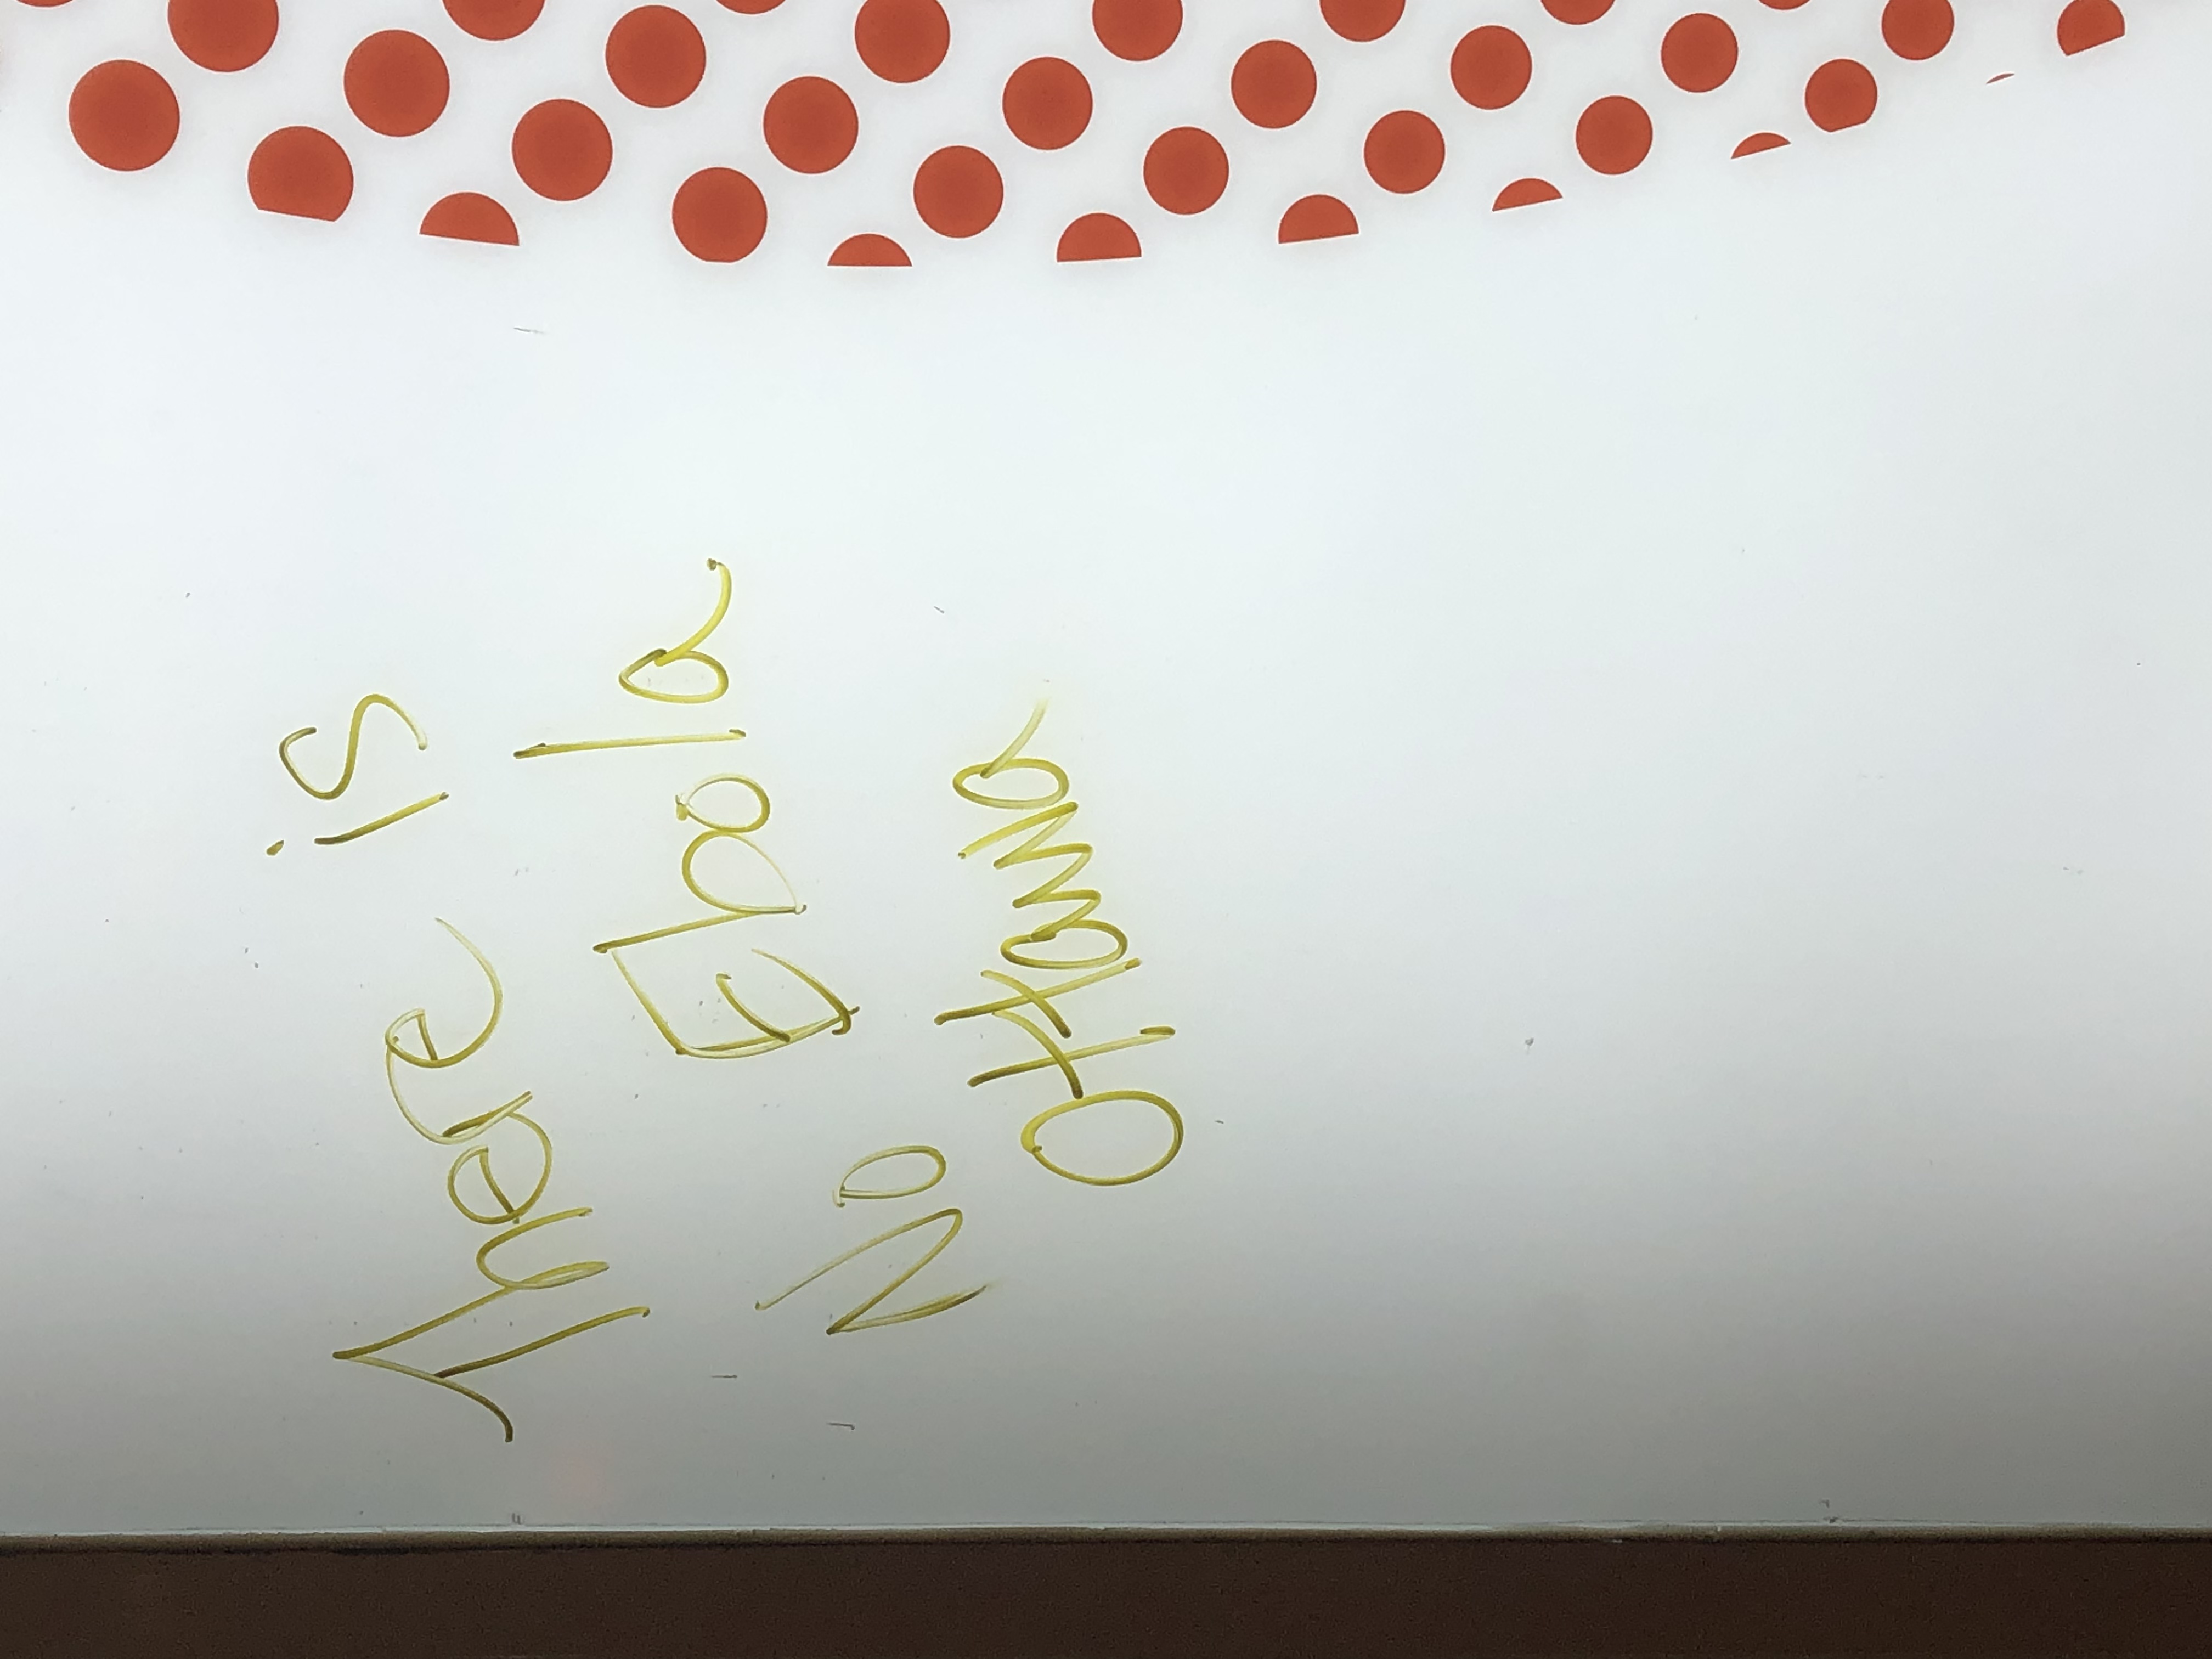 There is
No Ebola
Ottawa